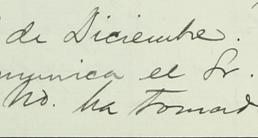 de Diciembre.
munica el Sr.
No. ha tomad